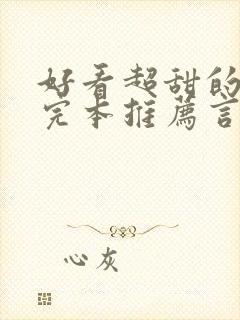 好看超甜的
完本推薦言
心灰